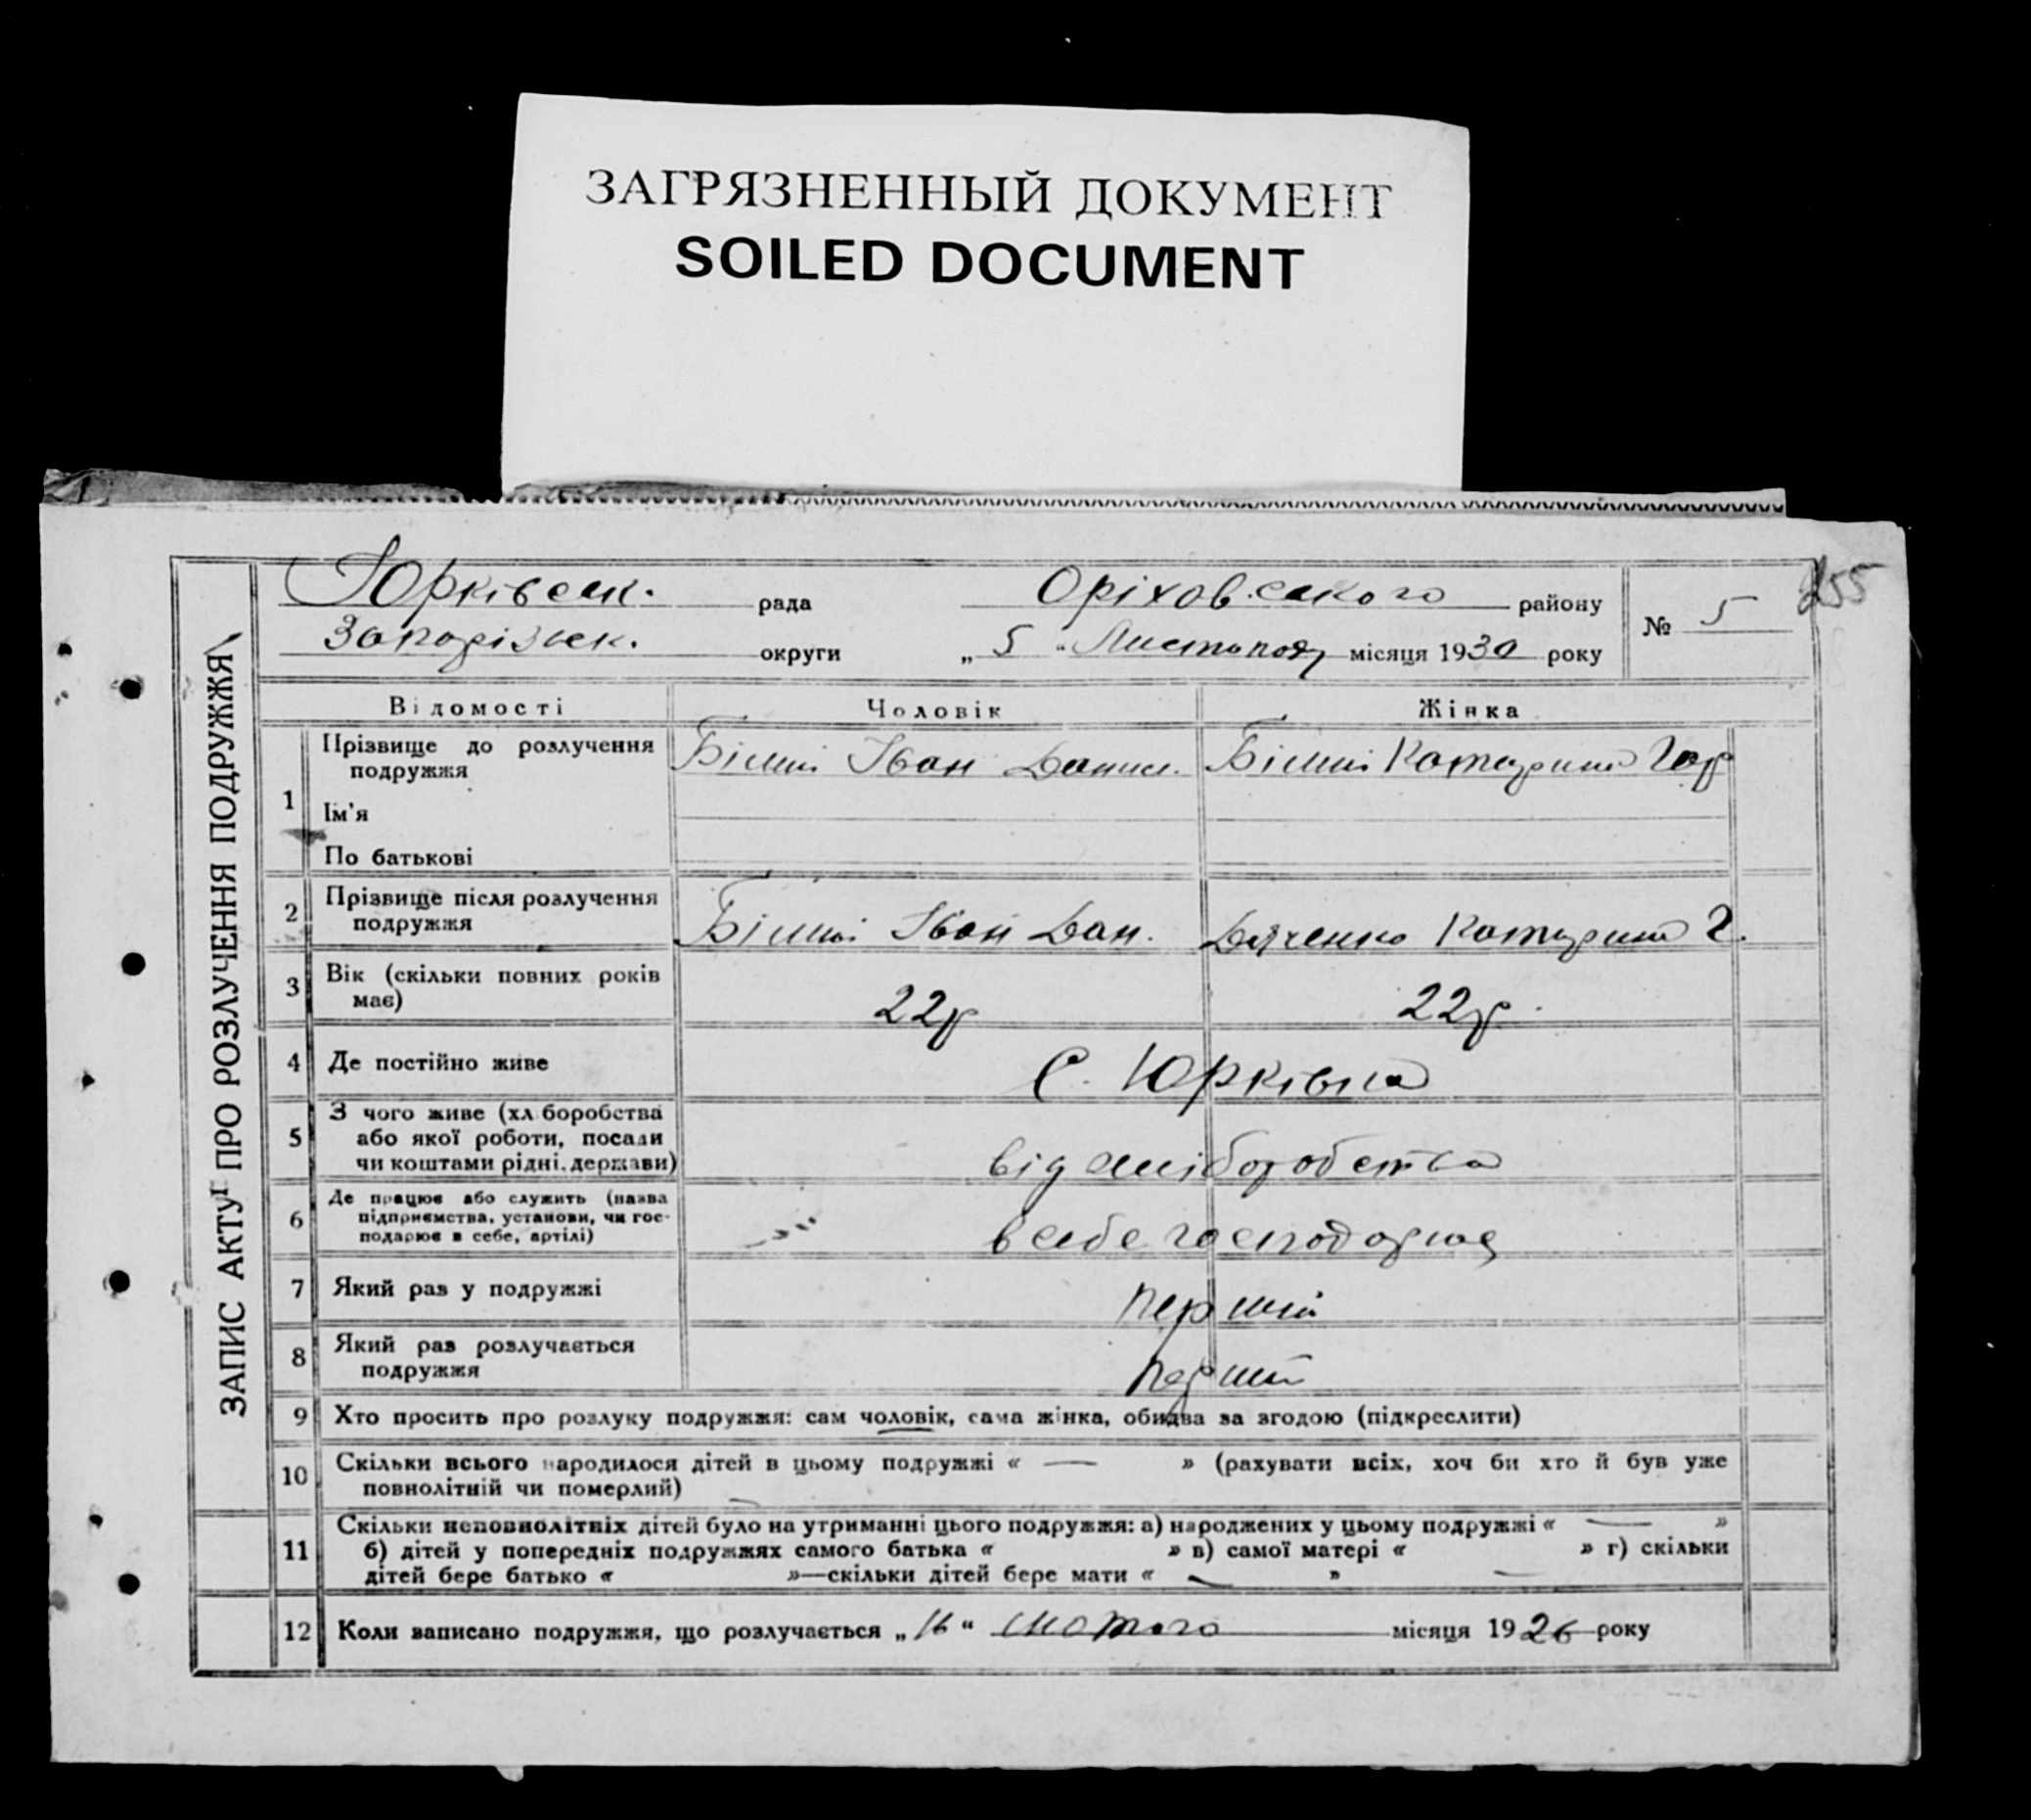 ЗАГРЯЗНЕННЫЙ ДОКУМЕНТ
SOILED DOCUMENT
255
ЗАПИС АКТУ ПРО РОЗЛУЧЕННЯ ПОДРУЖЖЯ
Юрківськ. рада Оріхов.ського району № 5
Запорізьк. округи „ 5 " Листопад місяця 1930 року
Відомості Чоловік Жінка
1 Прізвище до розлучення подружжя Іван Данил. Катерина Гор
Ім'я
По батькові
2 Прізвище після розлучення
подружжя Іван Дан. Дяченко Катерина Г.
3 Вік (скільки повних років
має) 22р 22р.
4 Де постійно живе С. Юрківка
5 З чого живе (хліборобства
або якої роботи, посади
чи коштами рідні, держави) від хліборобства
6 Де працює або служить (назва
підприємства, установи, чи гос-
подарює в себе, артілі) в себе господарює
7 Який раз у подружжі перший
8 Який раз розлучається
подружжя перший
9 Хто просить про розлуку подружжя: сам чоловік, сама жінка, обидва за згодою (підкреслити)
10 Скільки всього народилося дітей в цьому подружжі « — » (рахувати всіх, хоч би хто й був уже
повнолітній чи померлий)
11 Скільки неповнолітніх дітей було на утриманні цього подружжя: а) народжених у цьому подружжі « — »
б) дітей у попередніх подружжях самого батька « » в) самої матері « » г) скільки
дітей бере батько « »—скільки дітей бере мати « — »
12 Коли записано подружжя, що розлучається „ 16 " лютого місяця 1926 року